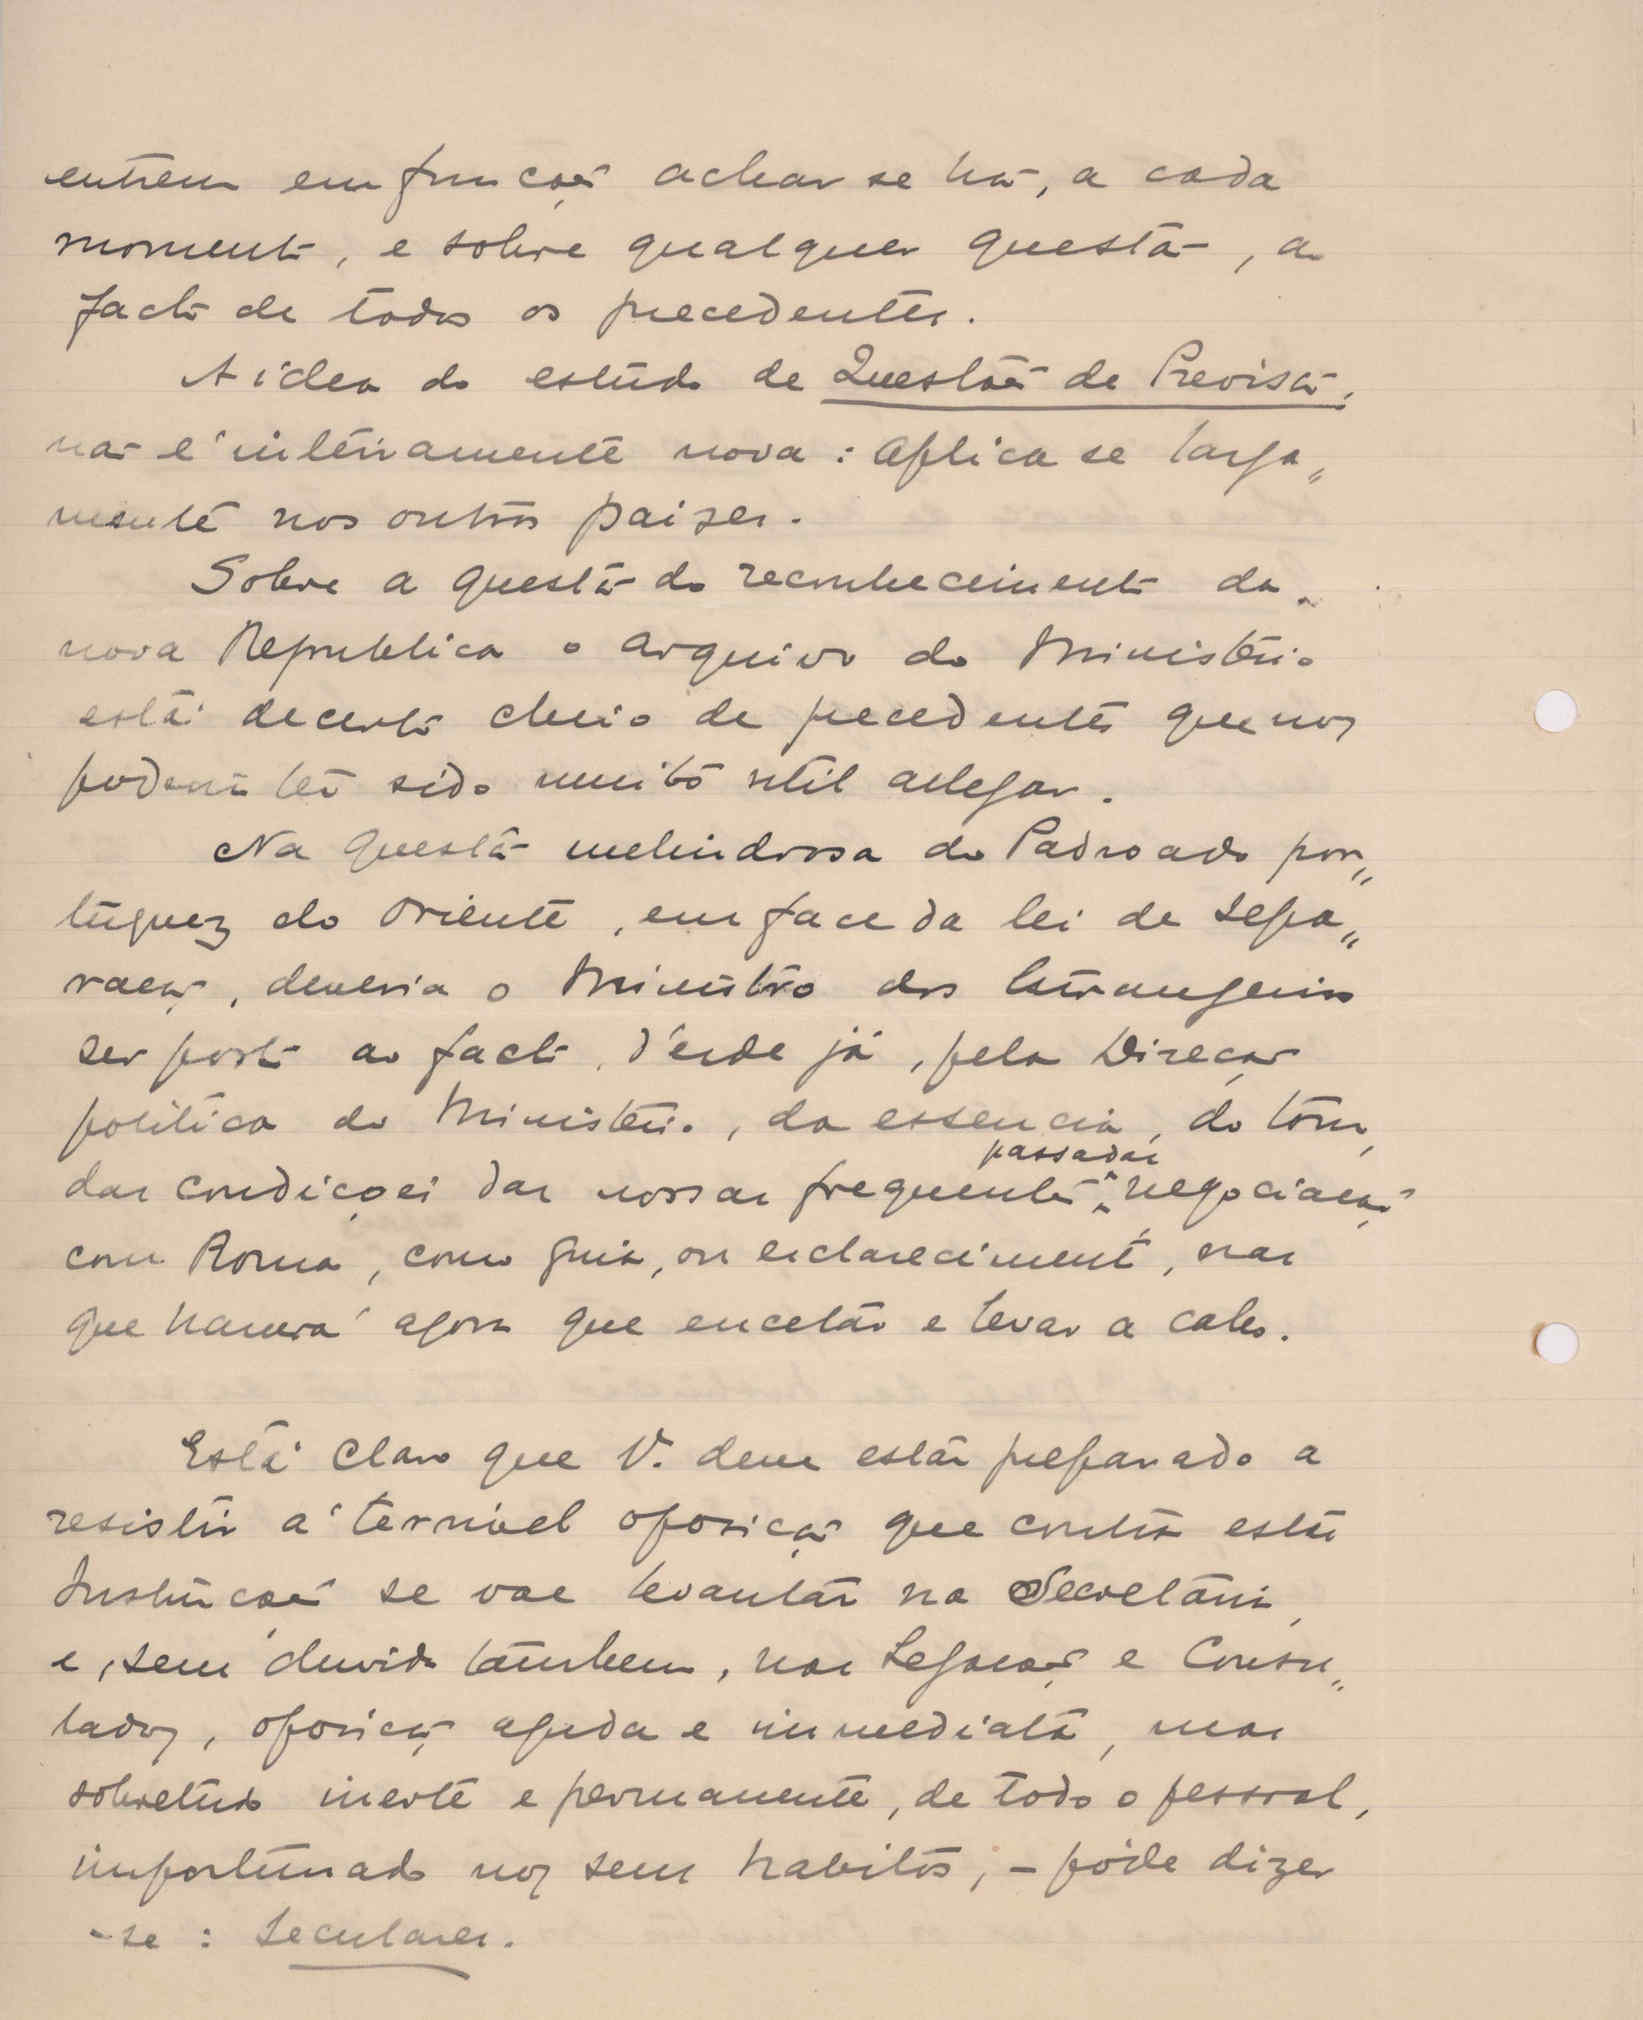 entrem em funções achar se ha, a cada
momento, e sobre qualquer questão, ao
facto de todos os precedentes.
A idea do estudo de Questões de Previsão,
não é inteiramente nova: aplica se larga„
mente nos outros paizes.
Sobre a questão do reconhecimento da
nova Republica o arquivo do Ministério
está decerto cheio de precedentes que nos
poderia ter sido muito util allegar.
Na questão melindrosa do Padroado por„
tuguez do Oriente, em face da lei de sepa„
ração, deveria o Ministro dos Estrangeiros
ser posto ao facto, d'esde já, pela Direcção
politica do Ministério, da essencia, do tom,
das condições das nossas frequentes passadas negociações
com Roma, como guia, ou esclarecimento, nas
que haverá agora que encetar e levar a cabo.
Está claro que V. deve estar preparado a
resistir á terrivel oposição que contra estas
Instrucções se vae levantar na Secretaria,
e, sem duvida tambem, nas Legações e Consu„
lados, oposição aguda e immediata, mas
sobretudo inerte e permanente, de todo o pessoal,
importunado nos seus habitos, – póde dizer
-se: seculares.